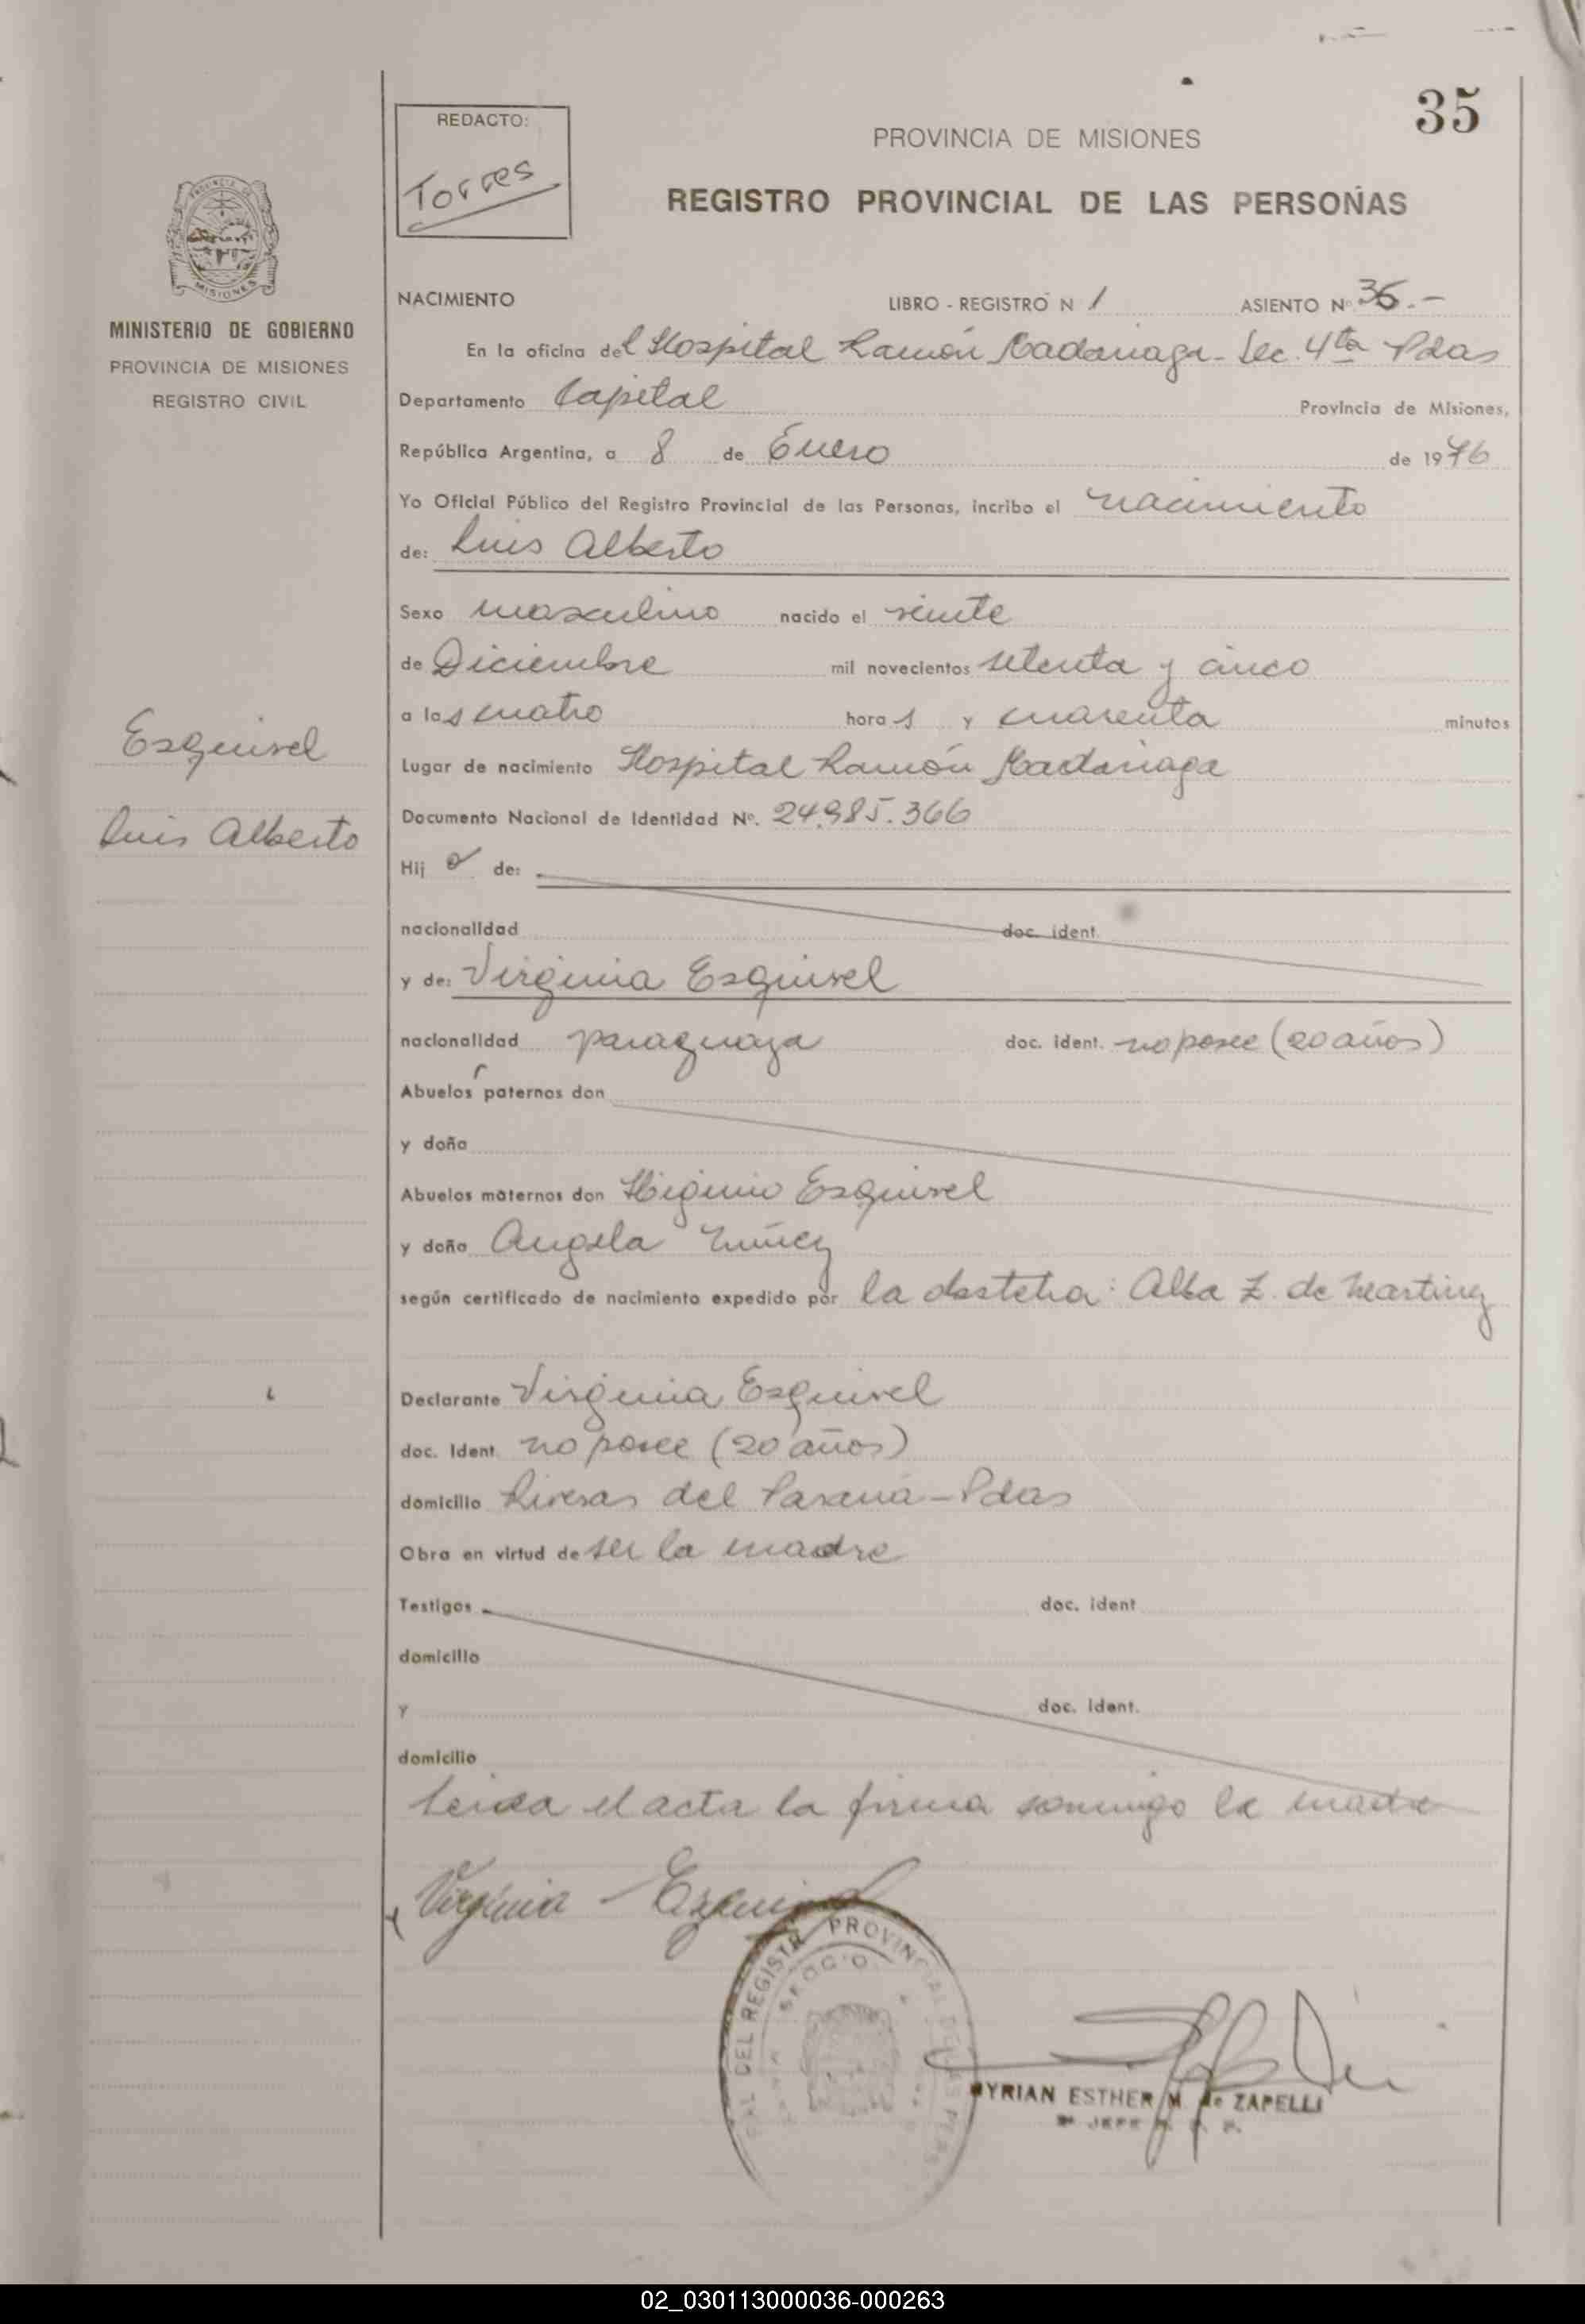 35
REDACTO:
Torres
PROVINCIA DE MISIONES
REGISTRO PROVINCIAL DE LAS PERSONAS
MISIONES
MINISTERIO DE GOBIERNO
PROVINCIA DE MISIONES
REGISTRO CIVIL
NACIMIENTO LIBRO - REGISTRO N 1 ASIENTO Nº 36.-
En la oficina del Hospital Ramón Madariaga - Sec. 4ta Pdas
Departamento Capital Provincia de Misiones,
República Argentina, a 8 de Enero de 1976
Yo Oficial Público del Registro Provincial de las Personas, incribo el nacimiento
de: Luis Alberto
Sexo masculino nacido el veinte
de Diciembre mil novecientos setenta y cinco
a las cuatro horas y cuarenta minutos
Esquivel
Luis Alberto
Lugar de nacimiento Hospital Ramón Madariaga
Documento Nacional de Identidad Nº. 24.985.366
Hij o de:
nacionalidad doc. ident.
y de: Virginia Esquivel
nacionalidad paraguaya doc. ident. no posee (20 años)
Abuelos paternos don
y doña
Abuelos maternos don Higinio Esquivel
y doña Angela Núñez
según certificado de nacimiento expedido por la obstetra: Alba Z. de Martinez
Declarante Virginia Esquivel
doc. Ident. no posee (20 años)
domicilio Riveras del Paraná - Pdas
Obra en virtud de ser la madre
Testigos doc. ident
domicilio
y doc. ident.
domicilio
Leida el acta la firma conmigo la madre
Virginia Esquivel
DEL REGISTR PROVINCIAL DE LAS PERS
MYRIAN ESTHER M. de ZAPELLI
JEFE
02_030113000036-000263